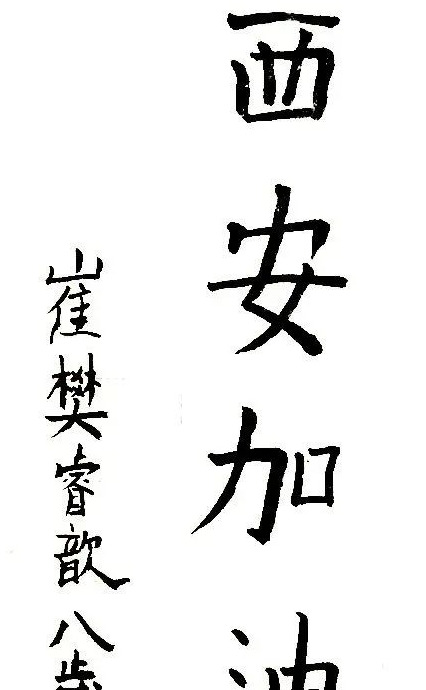 西安加油
崔樊睿歆八岁